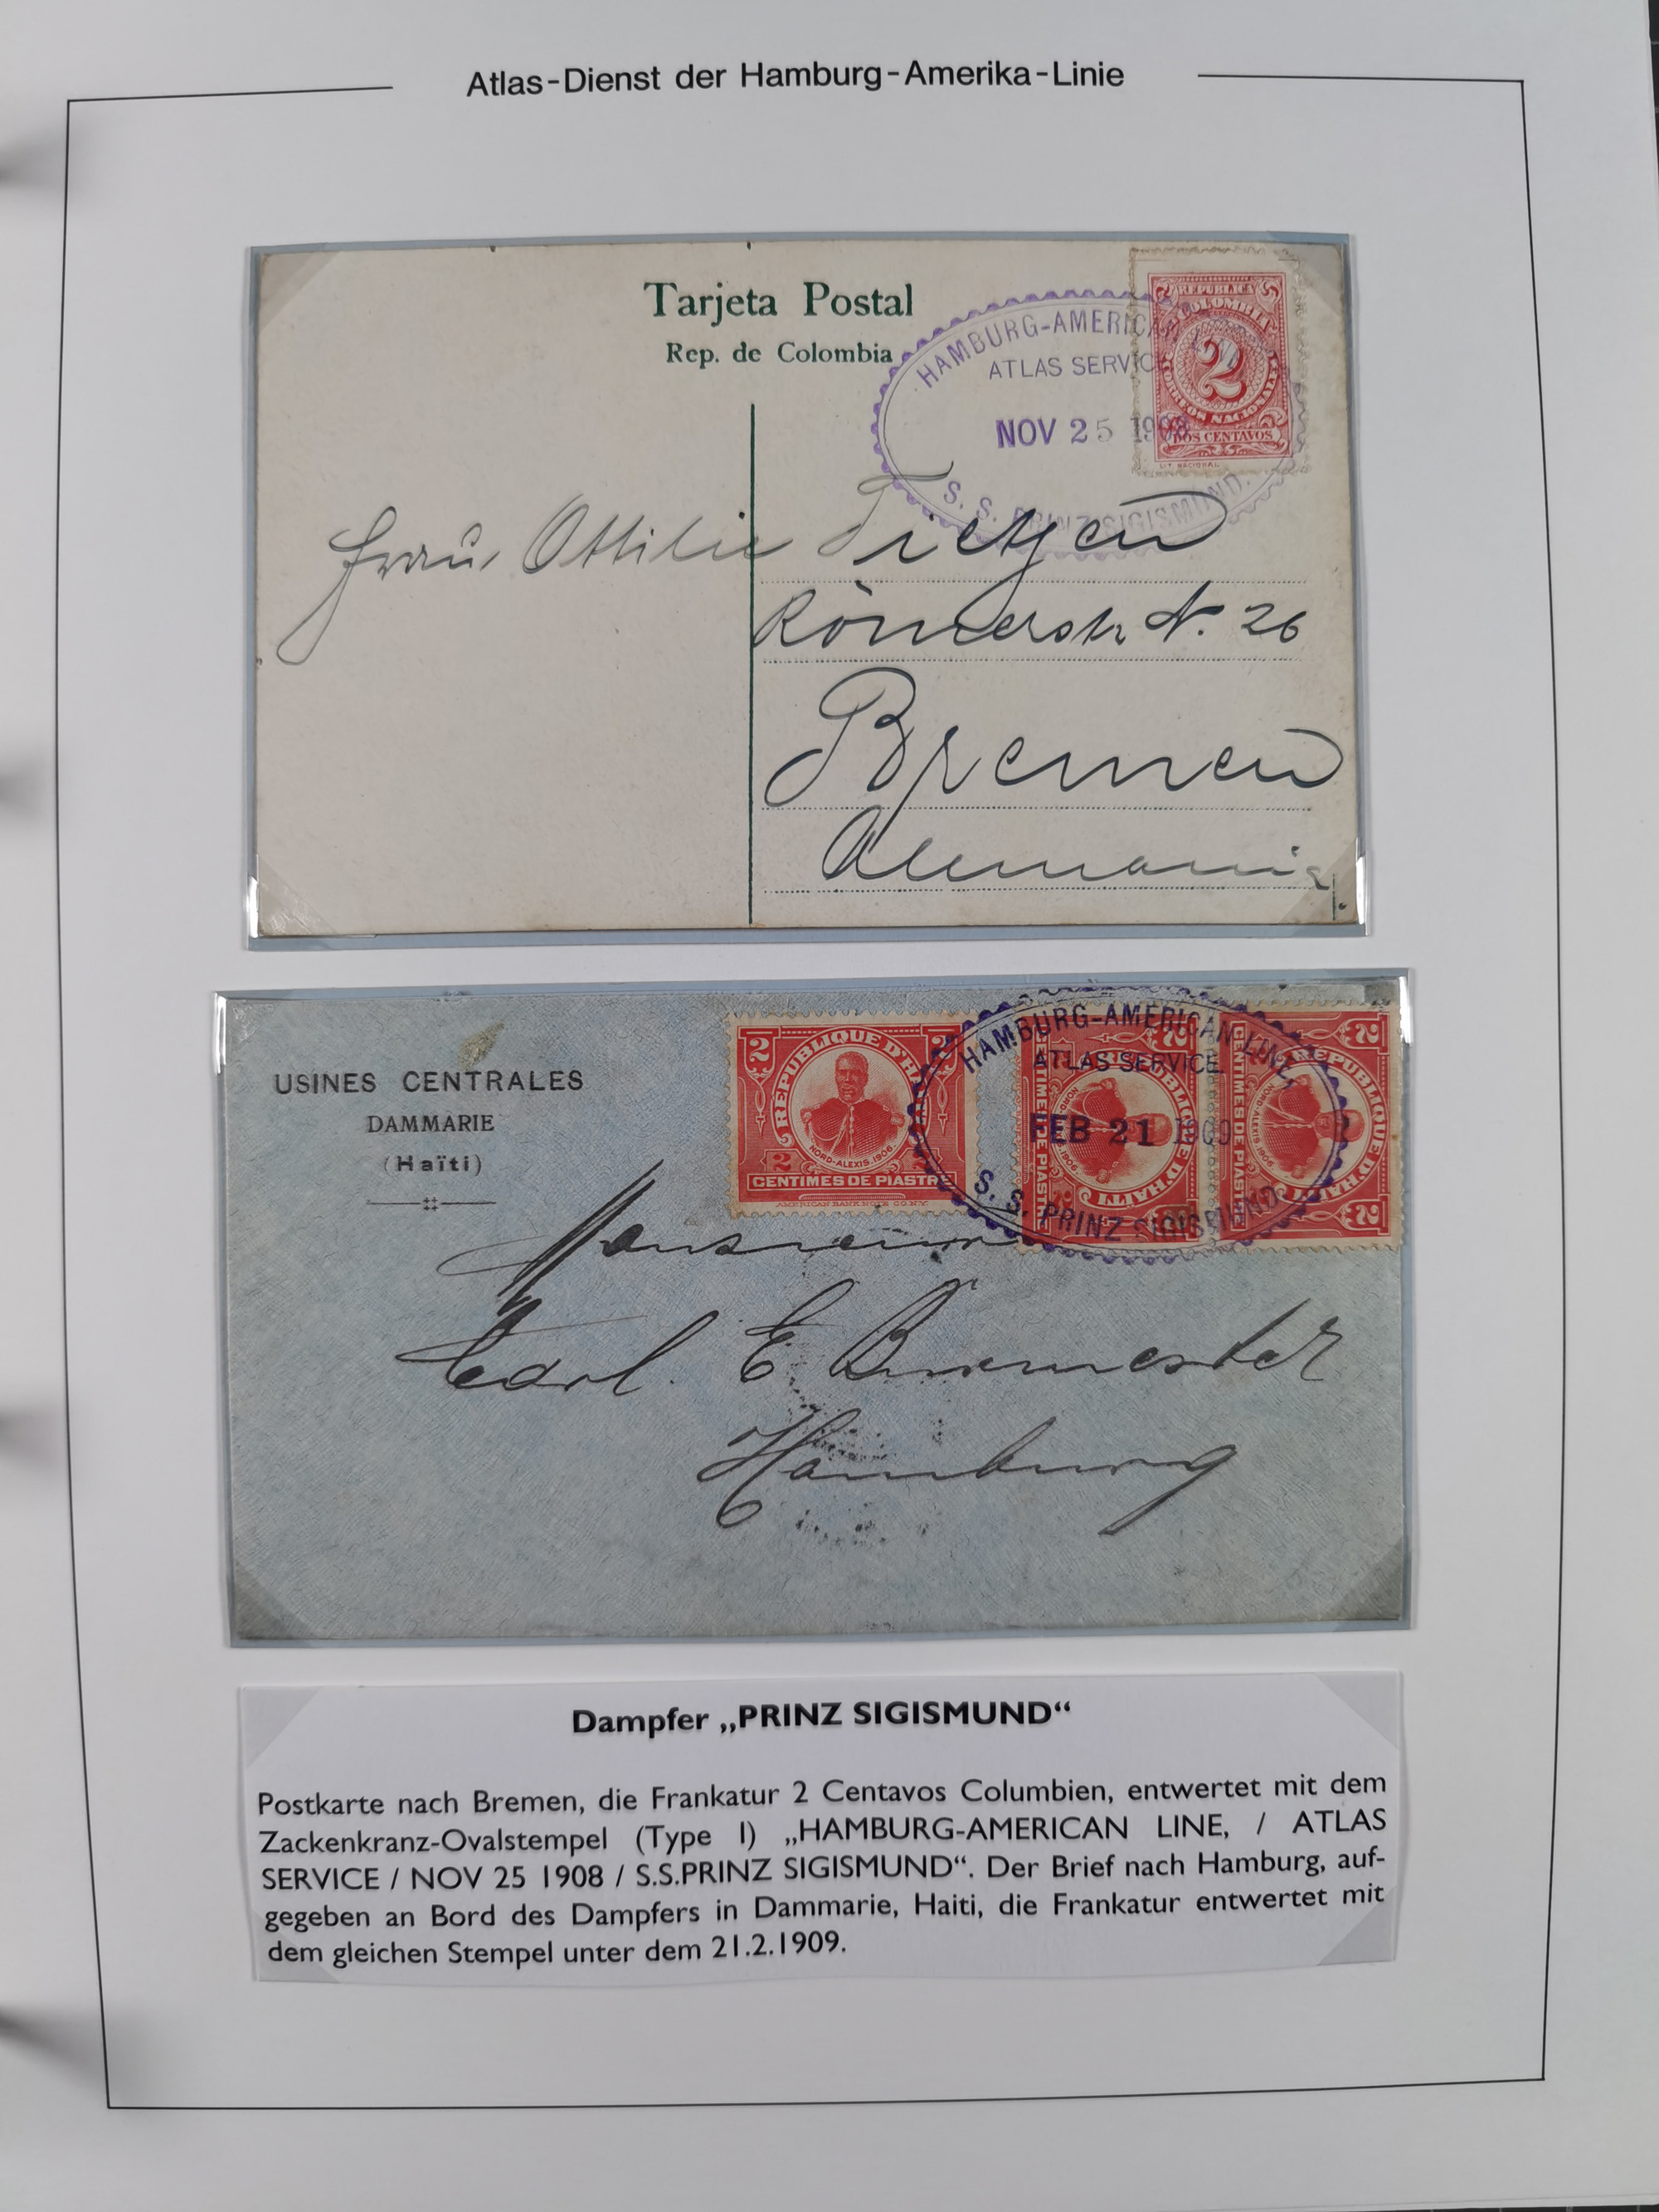 Atlas-Dienst der Hamburg-Amerika-Linie
Tarjeta Postal
Rep. de Colombia
HAMBURG-AMERICAN LINE,
ATLAS SERVICE
NOV 25 1908
S. S. PRINZ SIGISMUND.
REPUBLICA
COLOMBIA
2
CORREOS NACIONALES
DOS CENTAVOS
LIT. NACIONAL
Frau Ottilie Tietjen
Römerstr N. 26
Bremen
Alemania
USINES CENTRALES
DAMMARIE
(Haïti)
2 2
REPUBLIQUE D'HAITI
NORD-ALEXIS.1906
2 2
CENTIMES DE PIASTRE
AMERICAN BANK NOTE CO. N.Y.
HAMBURG-AMERICAN LINE,
ATLAS SERVICE.
FEB 21 1909
S. S. PRINZ SIGISMUND.
2
REPUBLIQUE D'HAITI
NORD-ALEXIS.1906
2
CENTIMES DE PIASTRE
2
REPUBLIQUE D'HAITI
NORD-ALEXIS.1906
2
CENTIMES DE PIASTRE
Monsieur
Carl. E Burmester
Hamburg
Dampfer „PRINZ SIGISMUND“
Postkarte nach Bremen, die Frankatur 2 Centavos Columbien, entwertet mit dem
Zackenkranz-Ovalstempel (Type I) „HAMBURG-AMERICAN LINE, / ATLAS
SERVICE / NOV 25 1908 / S.S.PRINZ SIGISMUND“. Der Brief nach Hamburg, auf-
gegeben an Bord des Dampfers in Dammarie, Haiti, die Frankatur entwertet mit
dem gleichen Stempel unter dem 21.2.1909.